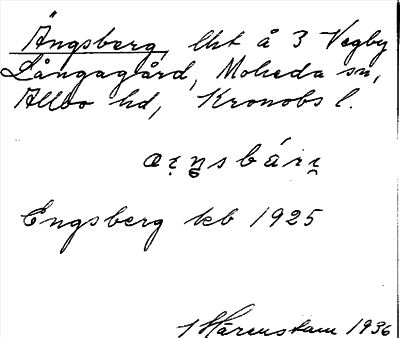 Ängsberg, lht å 3 Vegby
Långagård, Moheda sn,
Allbo hd, Kronobs l.
Engsberg kb 1925
1936